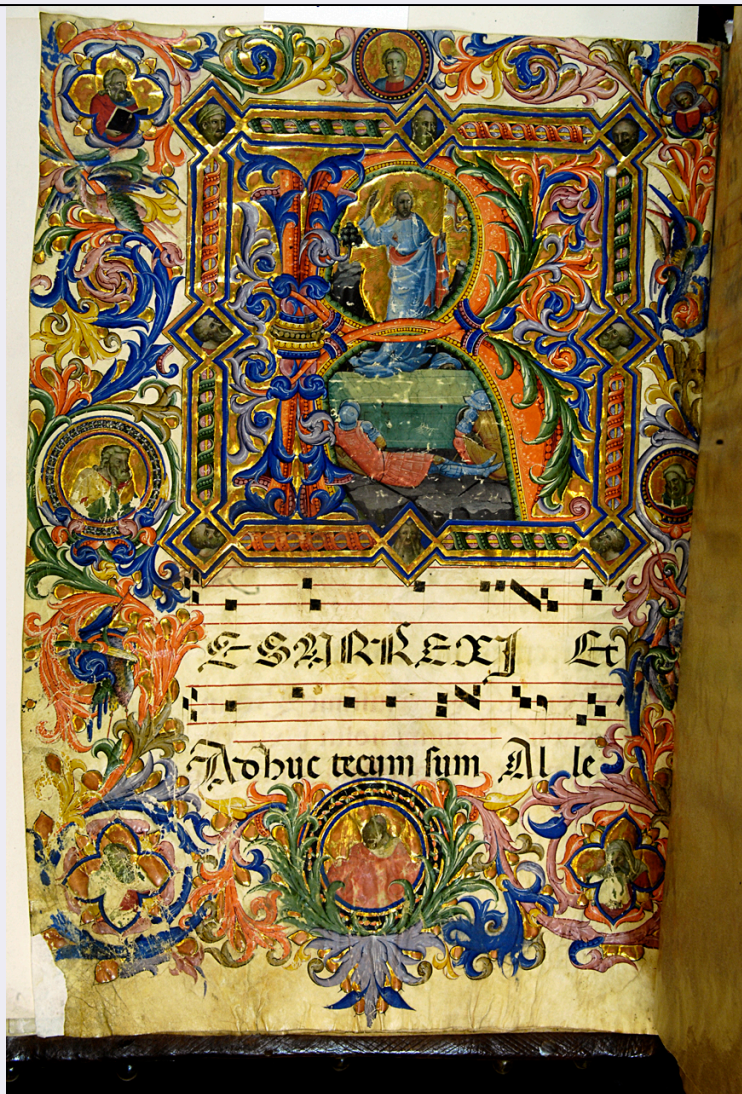 RESURREXI Et
Adhuc tecum sum Al le